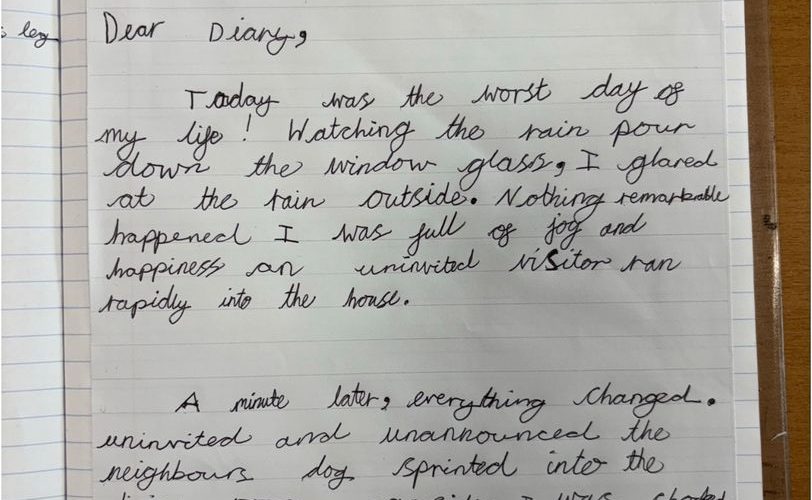 leg
Dear Diary,
Today was the worst day of
my life! Watching the rain pour
down the window glass, I glared
at the rain outside. Nothing remarkable
happened I was full of joy and
happiness an uninvited visitor ran
rapidly into the house.
A minute later, everything changed.
uninvited and unannounced the
neighbours dog sprinted into the
I was